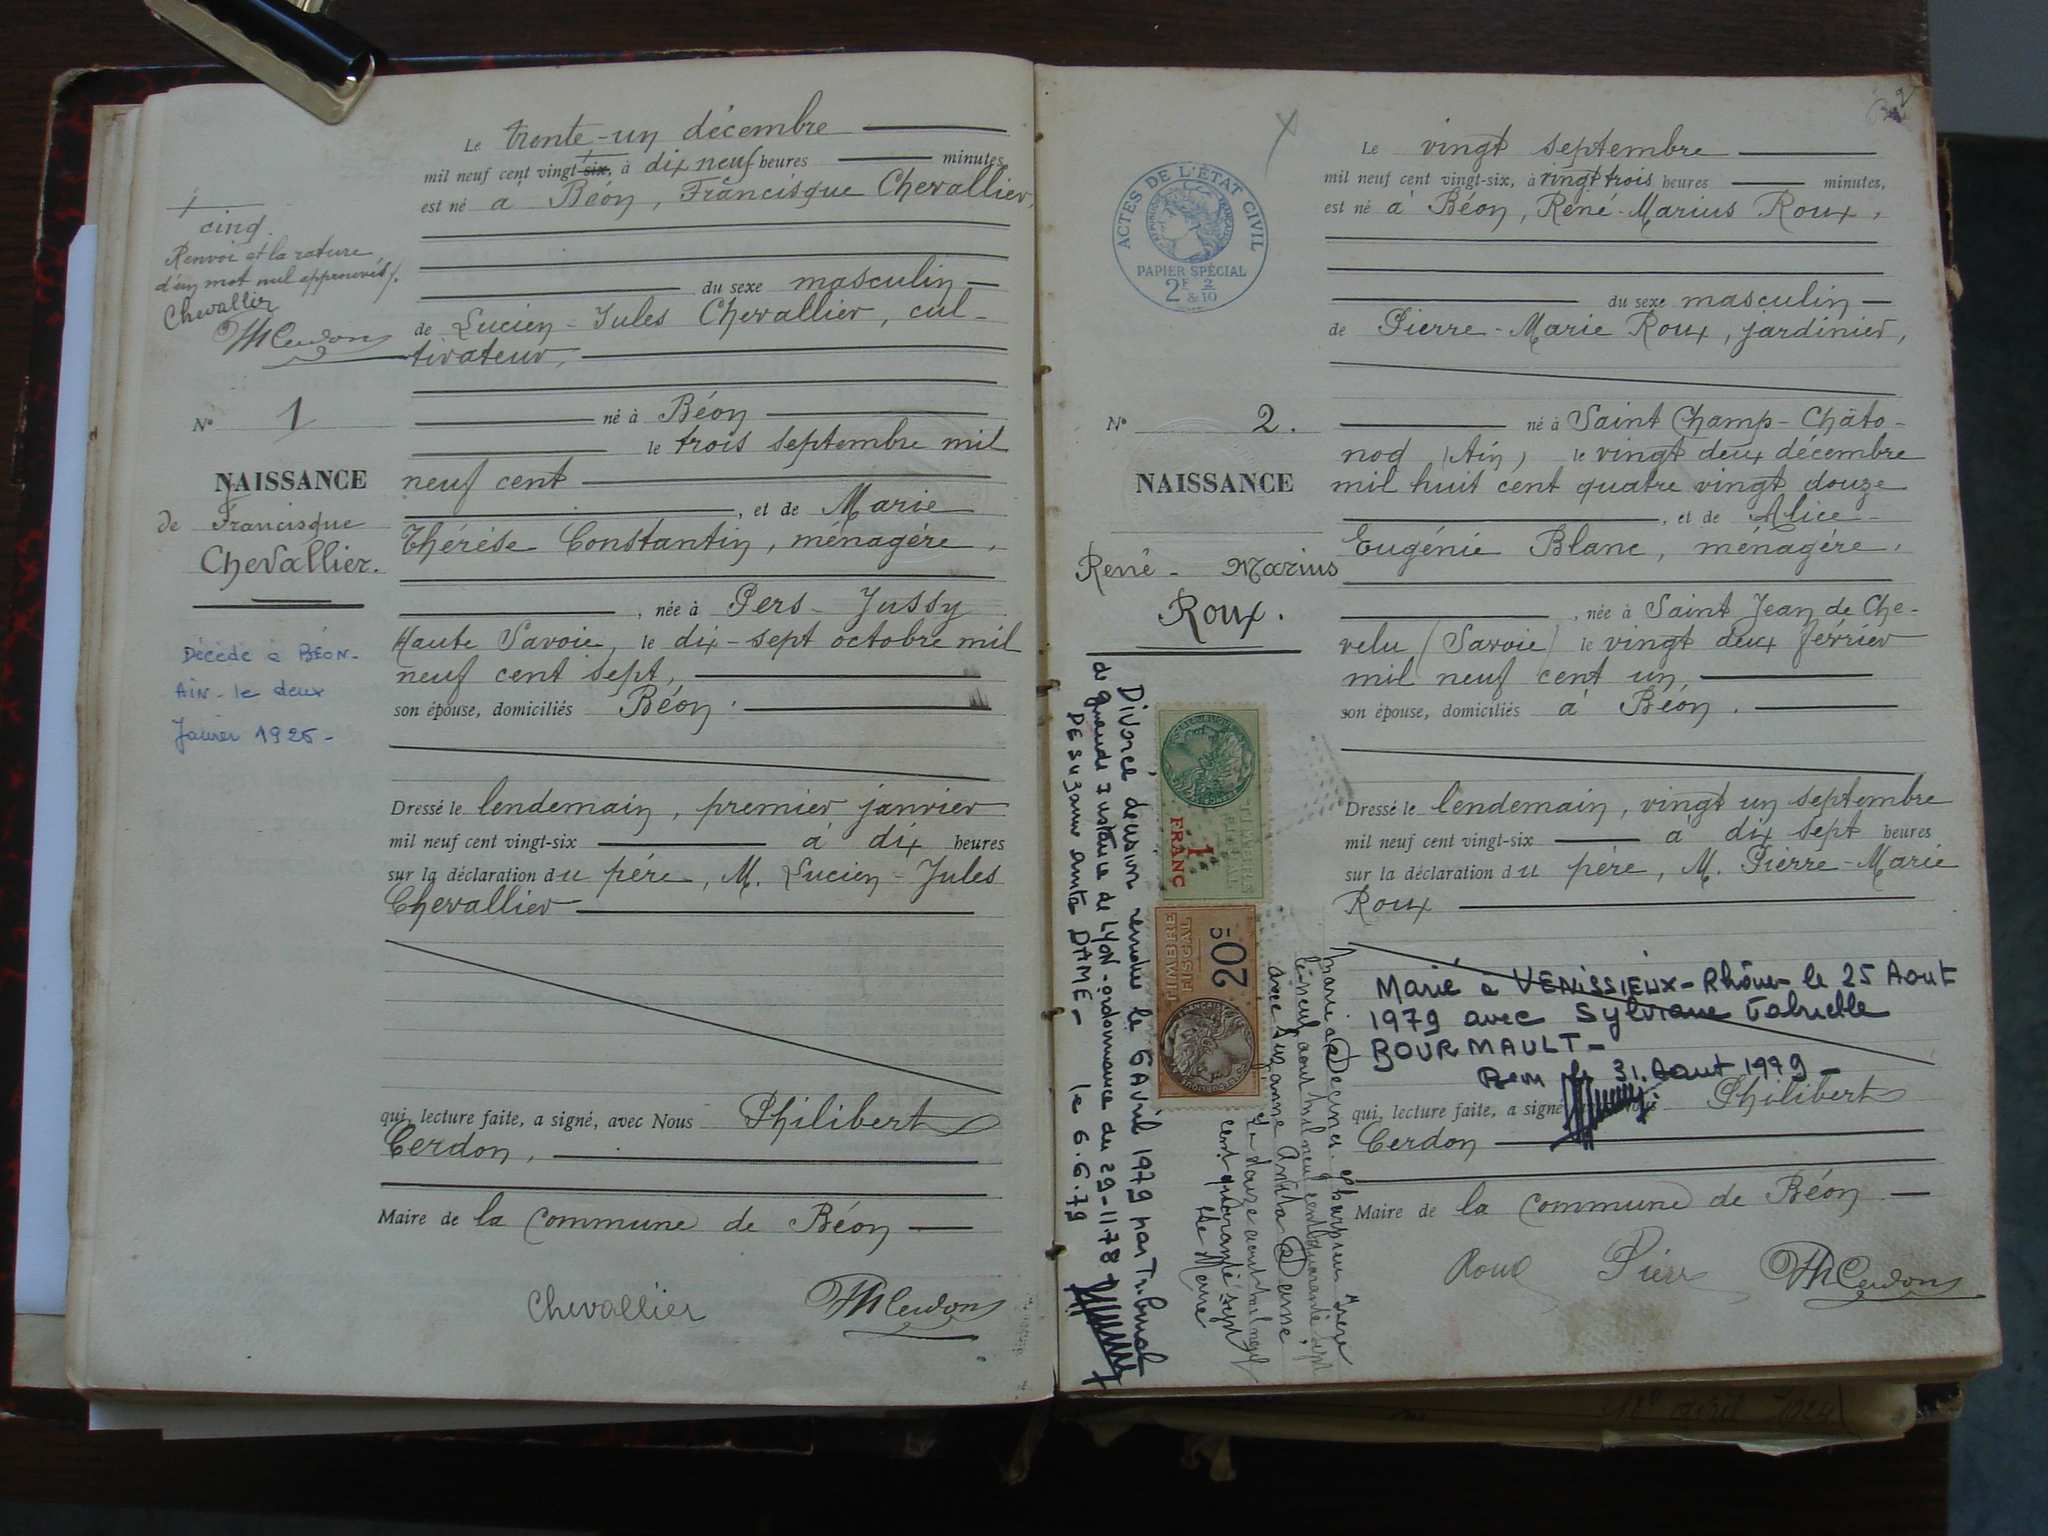 Le trente-un décembre
mil neuf cent vingt-six, à dix neuf heures minutes
est né à Béon, Francisque Chevallier,
cinq.
Renvoi et la rature
d'un mot nul approuvés.
Chevallier
PhCerdon
du sexe masculin
de Lucien-Jules Chevallier, cul-
tivateur,
né à Béon
N° 1
le trois septembre mil
NAISSANCE
neuf cent
de Francisque
Chevallier.
, et de Marie
Thérèse Constantin, ménagère,
, née à Pers-Jussy
Haute Savoie, le dix-sept octobre mil
neuf cent sept,
son épouse, domiciliés Béon.
Décédé à BÉON-
AIN - le deux
Janvier 1926 -
Dressé le lendemain, premier janvier
mil neuf cent vingt-six à dix heures
sur la déclaration du père, M. Lucien-Jules
Chevallier
qui, lecture faite, a signé, avec Nous Philibert
Cerdon,
Maire de la commune de Béon
Chevallier PhCerdon
2
Le vingt septembre
mil neuf cent vingt-six, à vingt trois heures minutes,
est né à Béon, René-Marius Roux,
ACTES DE L'ÉTAT CIVIL
PAPIER SPÉCIAL
2F 2
&10
du sexe masculin
de Pierre-Marie Roux, jardinier,
N° 2.
né à Saint Champ-Châto-
nod (Ain), le vingt deux décembre
NAISSANCE
mil huit cent quatre vingt douze
, et de Alice-
Eugénie Blanc, ménagère,
René-Marius
Roux.
, née à Saint Jean de Che-
velu (Savoie) le vingt deux février
mil neuf cent un,
son épouse, domiciliés à Béon.
Dressé le lendemain, vingt un septembre
mil neuf cent vingt-six à dix sept heures
sur la déclaration du père, M. Pierre-Marie
Roux
Marié à VENISSIEUX - Rhône - le 25 Aout
1979 avec Sylviane Gabrielle
BOURMAULT -
Beon le 31. Aout 1979 -
qui, lecture faite, a signé, avec Nous Philibert
Cerdon
Maire de la commune de Béon
Roux Pierre PhCerdon
Marié à Decines-Charpieu Isère
le neuf aout mil neuf cent quarante sept
avec Suzanne Anita Dame
Le douze aout mil neuf
cent quarante sept
Le Maire
1F
FRANC
TIMBRE
FISCAL
0F02
Divorcé de son rendu le 6 Avril 1979 par Tribunal
de grande Instance de LYON - ordonnance du 29-11-78
DE Suzanne anita DAME - le 6.6.79